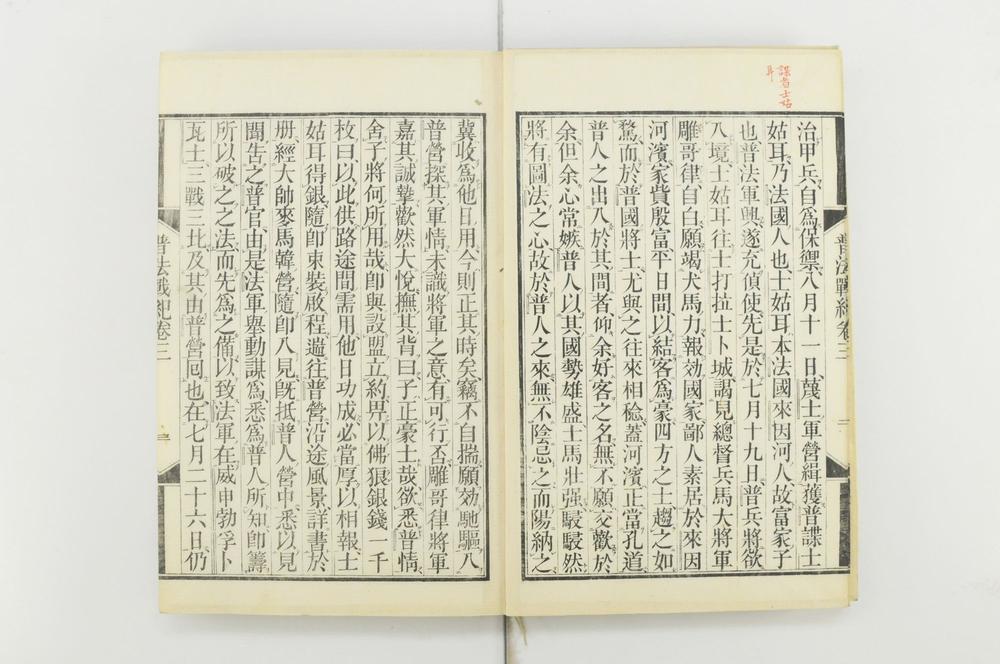 諜者士姑
耳
治甲兵自爲保禦八月十一日蔑士軍營緝獲普諜士
姑耳乃法國人也士姑耳本法國來因河人故富家子
也普法軍興遂充偵使先是於七月十九日普兵將欲
入境士姑耳往士打拉士卜城謁見總督兵馬大將軍
雕哥律自白願竭犬馬力報効國家鄙人素居於來因
河濱家貲殷富平日間以結客爲豪四方之士趨之如
騖而於普國將士尤與之往來相稔蓋河濱正當孔道
普人之出入於其間者仰余好客之名無不願交歡於
余但余心常嫉普人以其國勢雄盛士馬壯强駸駸然
將有圖法之心故於普人之來無不陰忌之而陽納之
普法戰紀卷三
二
冀收爲他日用今則正其時矣竊不自揣願効馳驅入
普營探其軍情未識將軍之意有可行否雕哥律將軍
嘉其誠摯歡然大悅撫其背曰子正豪士哉欲悉普情
舍子將何所用哉卽與設盟立約畀以佛狼銀錢一千
枚曰以此供路途間需用他日功成必當厚以相報士
姑耳得銀隨卽束裝啟程遄往普營沿途風景詳書於
册經大師來馬韓營隨卽入見旣抵普人營中悉以見
聞吿之普官由是法軍舉動謀爲悉爲普人所知卽籌
所以破之之法而先爲之備以致法軍在威申勃孚卜
瓦士三戰三北及其由普營囘也在七月二十六日仍
普法戰紀卷三
三